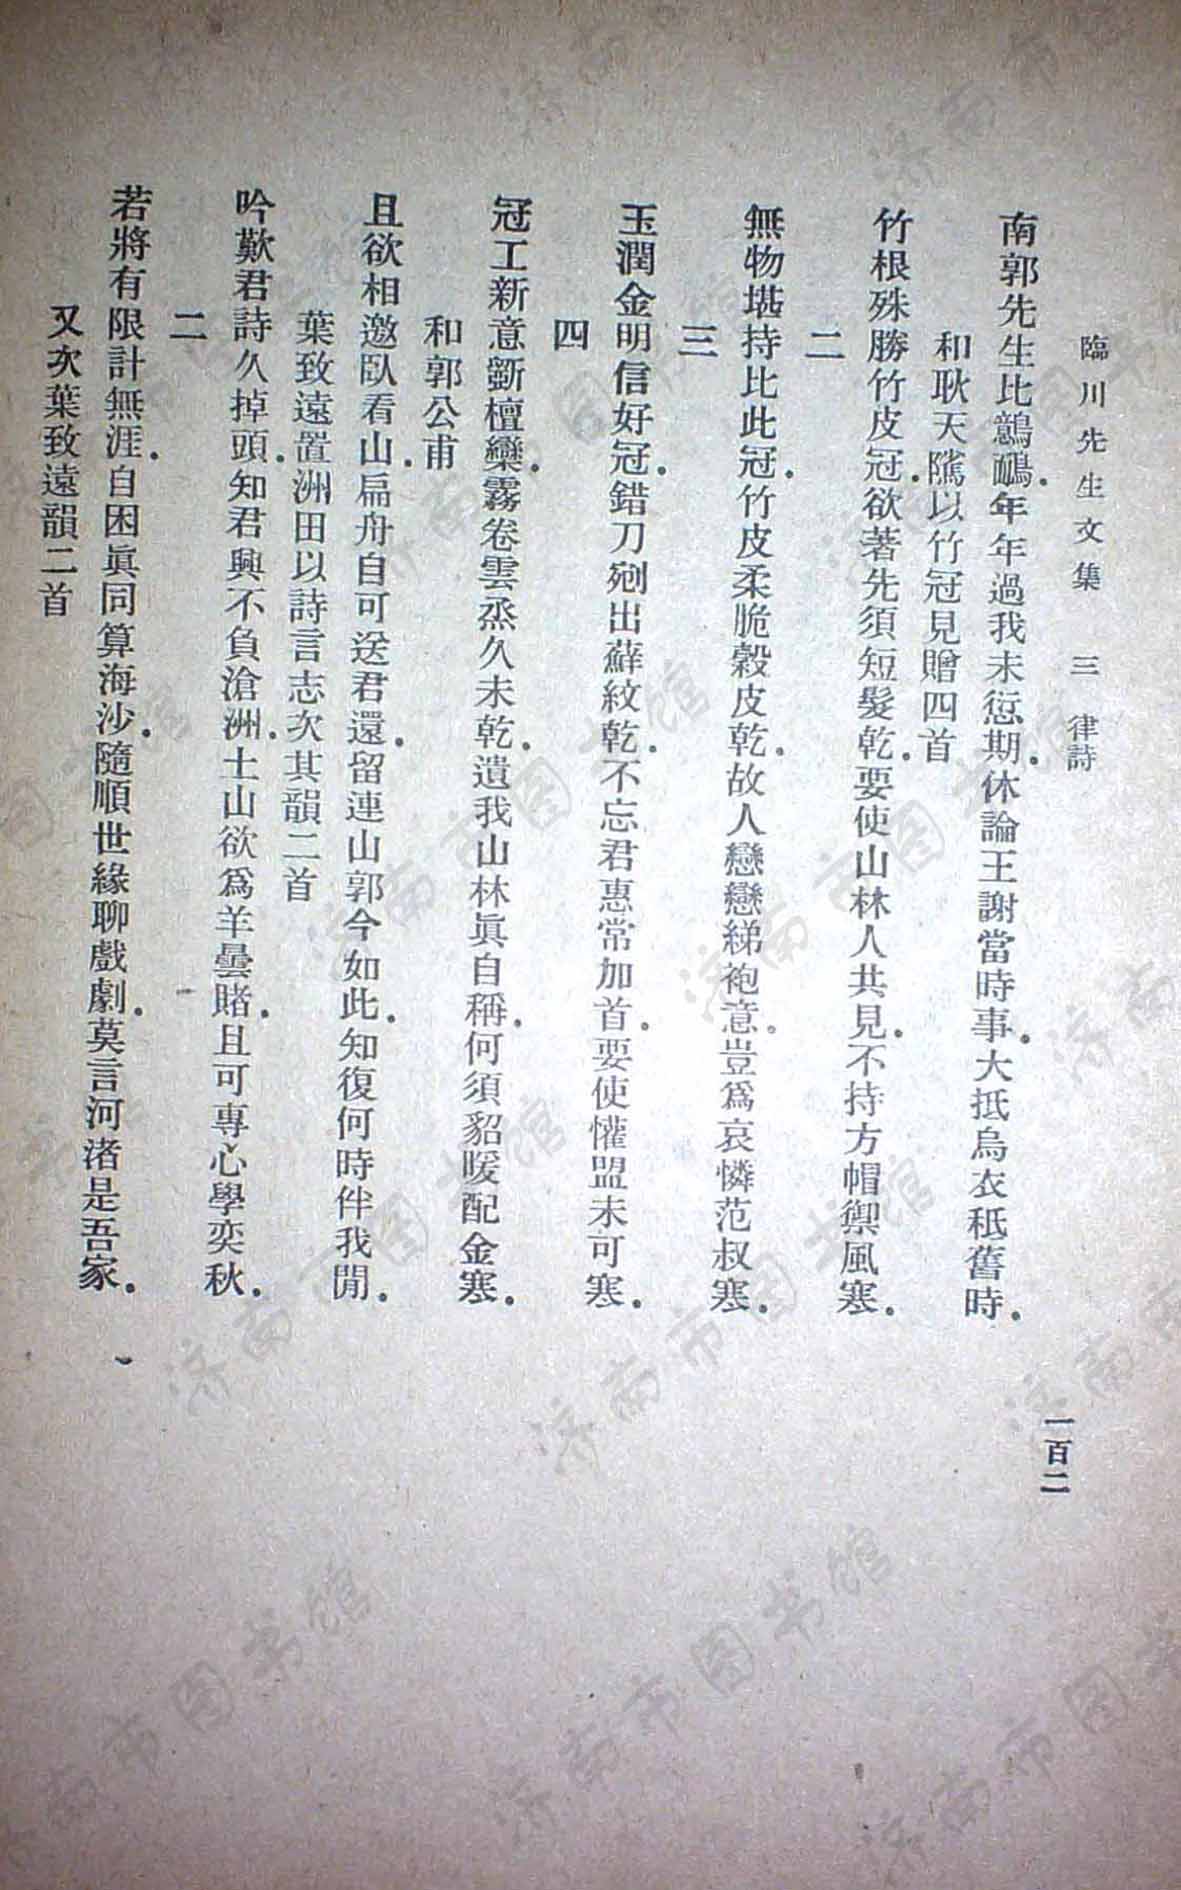 臨川先生文集　三　律詩
一百二
南郭先生比鷾鴯。年年過我未愆期。休論王謝當時事。大抵烏衣秪舊時。
和耿天隲以竹冠見贈四首
竹根殊勝竹皮冠。欲著先須短髮乾。要使山林人共見。不持方帽禦風寒。
二
無物堪持比此冠。竹皮柔脆縠皮乾。故人戀戀綈袍意。豈爲哀憐范叔寒。
三
玉潤金明信好冠。錯刀剜出蘚紋乾。不忘君惠常加首。要使懽盟未可寒。
四
冠工新意斵檀欒。霧卷雲烝久未乾。遺我山林眞自稱。何須貂暖配金寒。
和郭公甫
且欲相邀臥看山。扁舟自可送君還。留連山郭今如此。知復何時伴我閒。
葉致遠置洲田以詩言志次其韻二首
吟歎君詩久掉頭。知君興不負滄洲。土山欲爲羊曇賭。且可專心學奕秋。
二
若將有限計無涯。自困眞同算海沙。隨順世緣聊戲劇。莫言河渚是吾家。
又次葉致遠韻二首
济南市图书馆